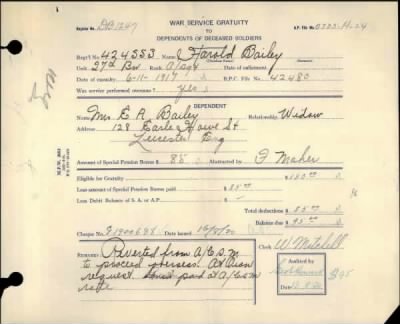 Register No. DB 1247
WAR SERVICE GRATUITY
TO
DEPENDENTS OF DECEASED SOLDIERS
A.P. File No. 0725-H-24
Reg't'l No. 424553 Name Harold Bailey
27th Bn Rank A/Sgt Date of enlistment
Date of casualty 6-11-1917 B.P.C. File No. 42480
Was service performed overseas? yes
DEPENDENT
Name Mrs E A Bailey Relationship Widow
Address 128 Earle Howe St
Leicester Eng
Amount of Special Pension Bonus $ 85 Abstracted by F Maher
Eligible for Gratuity $ 180.00
Less amount of Special Pension Bonus paid $ 85.00
Less Debit Balance of S. A. or A.P. $
Total deductions $ 85.00
Balance due $ 95.00
Cheque No. Date issued
Clerk W Mitchell
REMARKS: Reverted from A/C.S.M
to proceed overseas. At own
request. paid at A/C.S.M
rate
Audited by
$95